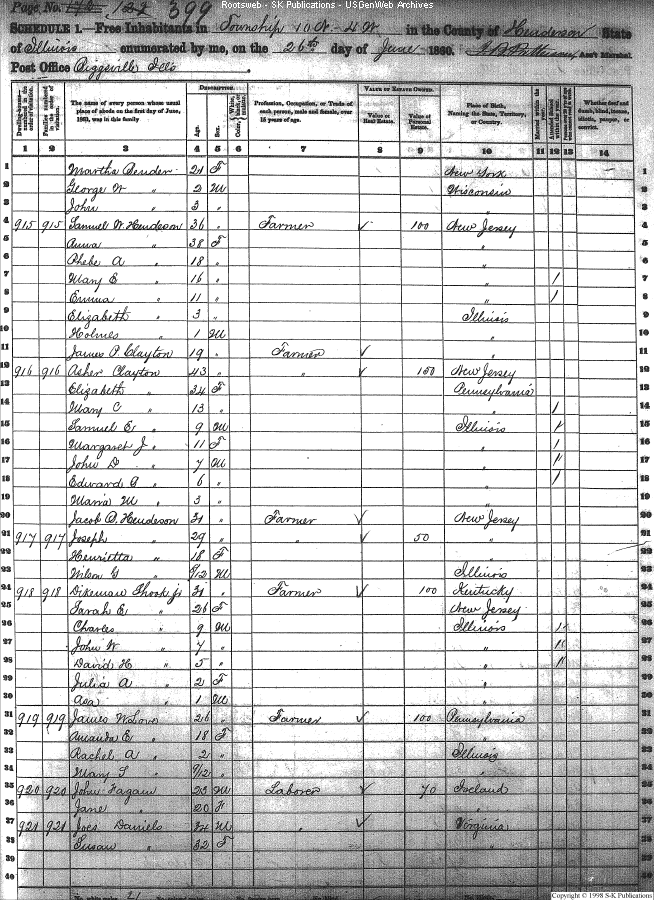 Rootsweb - SK Publications - USGenWeb Archives
Page No. 399
SCHEDULE 1.—Free Inhabitants in Township 10 N. - 4 W. in the County of Henderson State
of Illinois enumerated by me, on the 26th day of June 1860. Ass't Marshal.
Post Office Biggsville Ills
Dwelling-houses numbered in the order of visitation. Families numbered in the order of visitation. The name of every person whose usual place of abode on the first day of June, 1860, was in this family DESCRIPTION. Age. Sex. Profession, Occupation, or Trade of each person, male and female, over 15 years of age. VALUE OF ESTATE OWNED. Value of Real Estate. Value of Personal Estate. Place of Birth, Naming the State, Territory, or Country. Married within the year. Whether deaf and dumb, blind, insane, idiotic, pauper, or convict.
1 2 3 4 5 6 7 8 9 10 11 12 13 14
1 Martha Bender 21 F New York 1
2 George W " 2 M Wisconsin 2
3 John " 3 " " 3
4 915 915 Samuel W. Hendeson 36 " Farmer ✓ 100 New Jersey 4
5 Anna " 38 F " 5
6 Phebe A " 18 " " 6
7 Mary E " 16 " " / 7
8 Emma " 11 " " / 8
9 Elizabeth " 3 " Illinois 9
10 Holmes " 1 M " 10
11 James P. Clayton 19 " Farmer ✓ " 11
12 916 916 Asher Clayton 43 " " ✓ 150 New Jersey 12
13 Elizabeth " 34 F Pennsylvania 13
14 Mary C " 13 " " / 14
15 Samuel E " 9 M Illinois / 15
16 Margaret J. " 11 F " / 16
17 John D " 7 M " / 17
18 Edward G " 6 " " / 18
19 Maria M " 3 " " 19
20 Jacob D. Hendeson 31 " Farmer ✓ New Jersey 20
21 917 917 Joseph " 29 " " ✓ 50 " 21
22 Henrietta " 18 F " 22
23 Wilson G " /12 M Illinois 23
24 918 918 Dikeman Shook jr 31 " Farmer ✓ 100 Kentucky 24
25 Sarah E " 26 F New Jersey 25
26 Charles " 9 M Illinois / 26
27 John W " 7 " " / 27
28 David H " 5 " " / 28
29 Julia A " 2 F " 29
30 Asa " 1 M " 30
31 919 919 James W Love 26 " Farmer ✓ 100 Pennsylvania 31
32 Amanda E " 18 F " 32
33 Rachel A " 2 " Illinois 33
34 Mary F " 9/12 " " 34
35 920 920 John Fagan 25 M Laborer ✓ 70 Ireland 35
36 Jane " 20 F " 36
37 921 921 Joes Daniels 34 M " ✓ Virginia 37
38 Susan " 32 F " 38
39 39
40 40
Copyright © 1998 S-K Publications